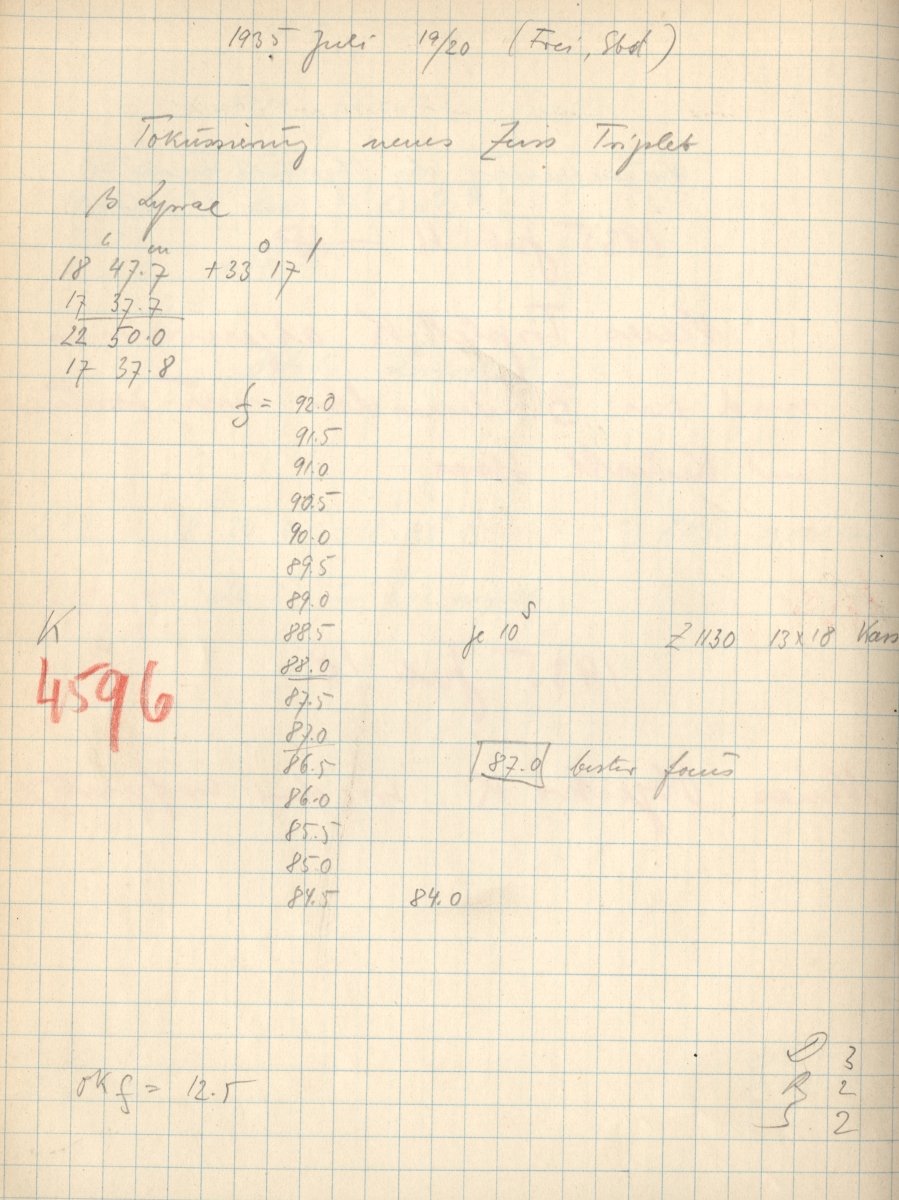 1935 Juli 19/20 (Frei, Sbd)
Fokussierung neues Zeiss Triplet
β Lyrae
h m o /
18 47.7 +33 17
17 37.7
22 50.0
17 37.8
f = 92.0
91.5
91.0
90.5
90.0
89.5
89.0
K 88.5 je 10 s Z 1130 13x18 Kass
4596 88.0
87.5
87.0
86.5 87.0 bester focus
86.0
85.5
85.0
84.5 84.0
D 3
okf = 12.5 R 2
S 2